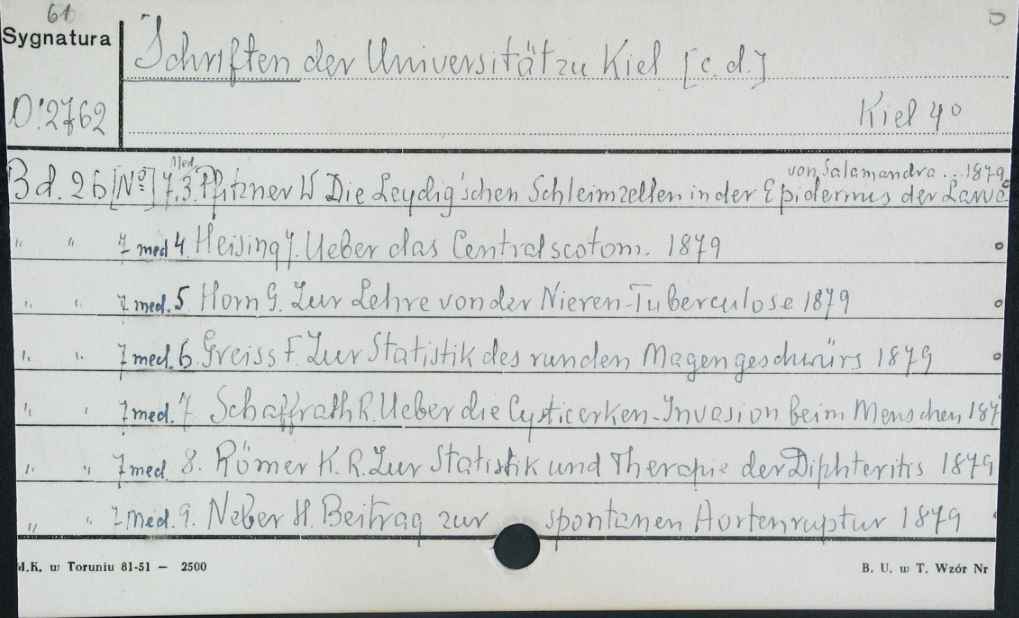 61
Sygnatura
Schriften der Universität zu Kiel [c.d.]
O!2762
Kiel 4°
Med.
von Salamandra .. 1879
Bd. 26 [No] 7.3 Pfitzner W Die Leydig'schen Schleimzellen in der Epidermis der Larve
" " 7 med 4. Heising J. Ueber das Centralscotom. 1879
" " 7 med. 5 Horn G. Zur Lehre von der Nieren-Tuberculose 1879
" " 7 med. 6. Greiss F. Zur Statistik des runden Magengeschwürs 1879
" " 7 med. 7 Schaffrath R. Ueber die Cysticerken-Invasion beim Menschen 187
" " 7 med 8. Römer K.R. Zur Statistik und Therapie der Diphteritis 1879
" " 7 med. 9. Neber H. Beitrag zur spontanen Aortenruptur 1879
M.K. w Toruniu 81-51 — 2500
B. U. w T. Wzór Nr